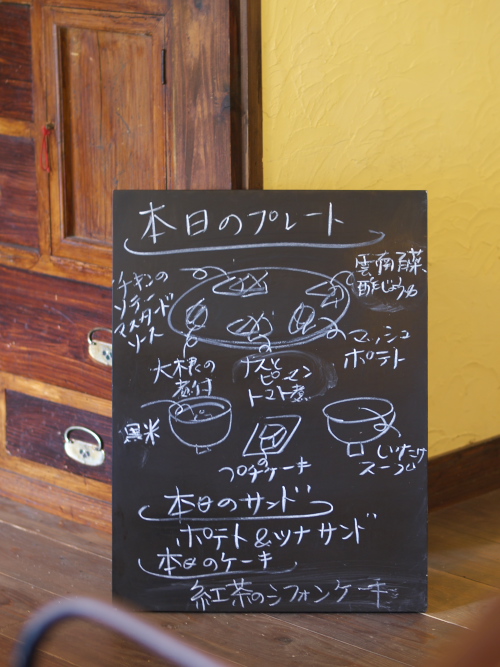 本日のプレート
チキンの
ソテー
マスタード
ソース
雲南百薬
酢じょうゆ
マッシュ
ポテト
大根の
煮付
ナスと
ピーマン
トマト煮
黒米
プチケーキ
しいたけ
スープ
本日のサンド
ポテト&ツナサンド
本日のケーキ
紅茶のシフォンケーキ